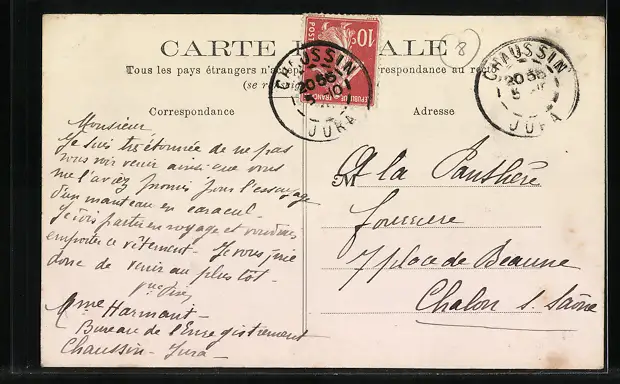 CARTE POSTALE
Tous les pays étrangers n'acceptent correspondance au recto
(se renseigner
8
10c
POSTES
RÉPUBLIQUE FRANÇAISE
CHAUSSIN
20 35
5
JURA
CHAUSSIN
20 35
5
JURA
Correspondance
Monsieur
Je suis très étonnée de ne pas
vous voir venir ainsi que vous
me l'aviez promis pour l'essayage
d'un manteau en caracul -
Je dois partir en voyage et voudrais
emporter ce vêtement - Je vous prie
donc de venir au plus tôt -
Mme Harmant -
Bureau de l'Enregistrement
Chaussin - Jura -
Adresse
M
A la Panthère
fourrure
7 place de Beaune
Chalon s Saône